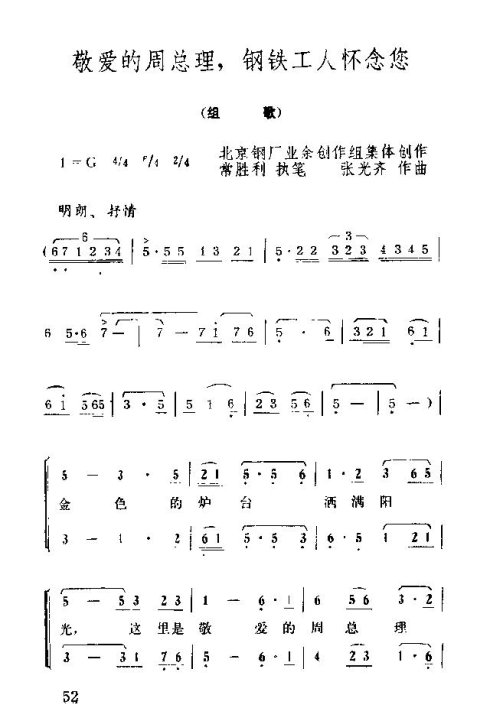 敬爱的周总理，钢铁工人怀念您
（组 歌）
北京钢厂业余创作组集体创作
1=G 4/4 5/4 2/4
常胜利 执笔 张光齐 作曲
明朗、抒情
6 3
(671234 | 5·55 13 21 | 5·22 323 4345 |
6 5·6 7 — | 7 — 71 76 | 5 · 6 | 321 61 |
61 565 | 3·5 | 51 6 | 23 56 | 5— | 5—) |
5 — 3 · 5 | 21 5·5 6 | 1·2 3 65 |
金 色 的炉 台 洒满阳
3 — 1 · 2 | 61 5·5 3 | 6·5 1 21 |
5 — 53 23 | 1 — 6·1 | 6 56 3·2 |
光， 这 里是 敬 爱的 周 总 理
3 — 31 76 | 5 — 6·1 | 4 23 1·6 |
52